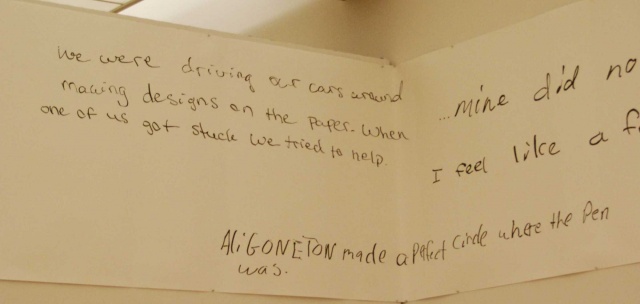 we were driving our cars around
making designs on the paper. when
one of us got stuck we tried to help.
...mine did no
I feel like a f
made a circle where the pen
was.